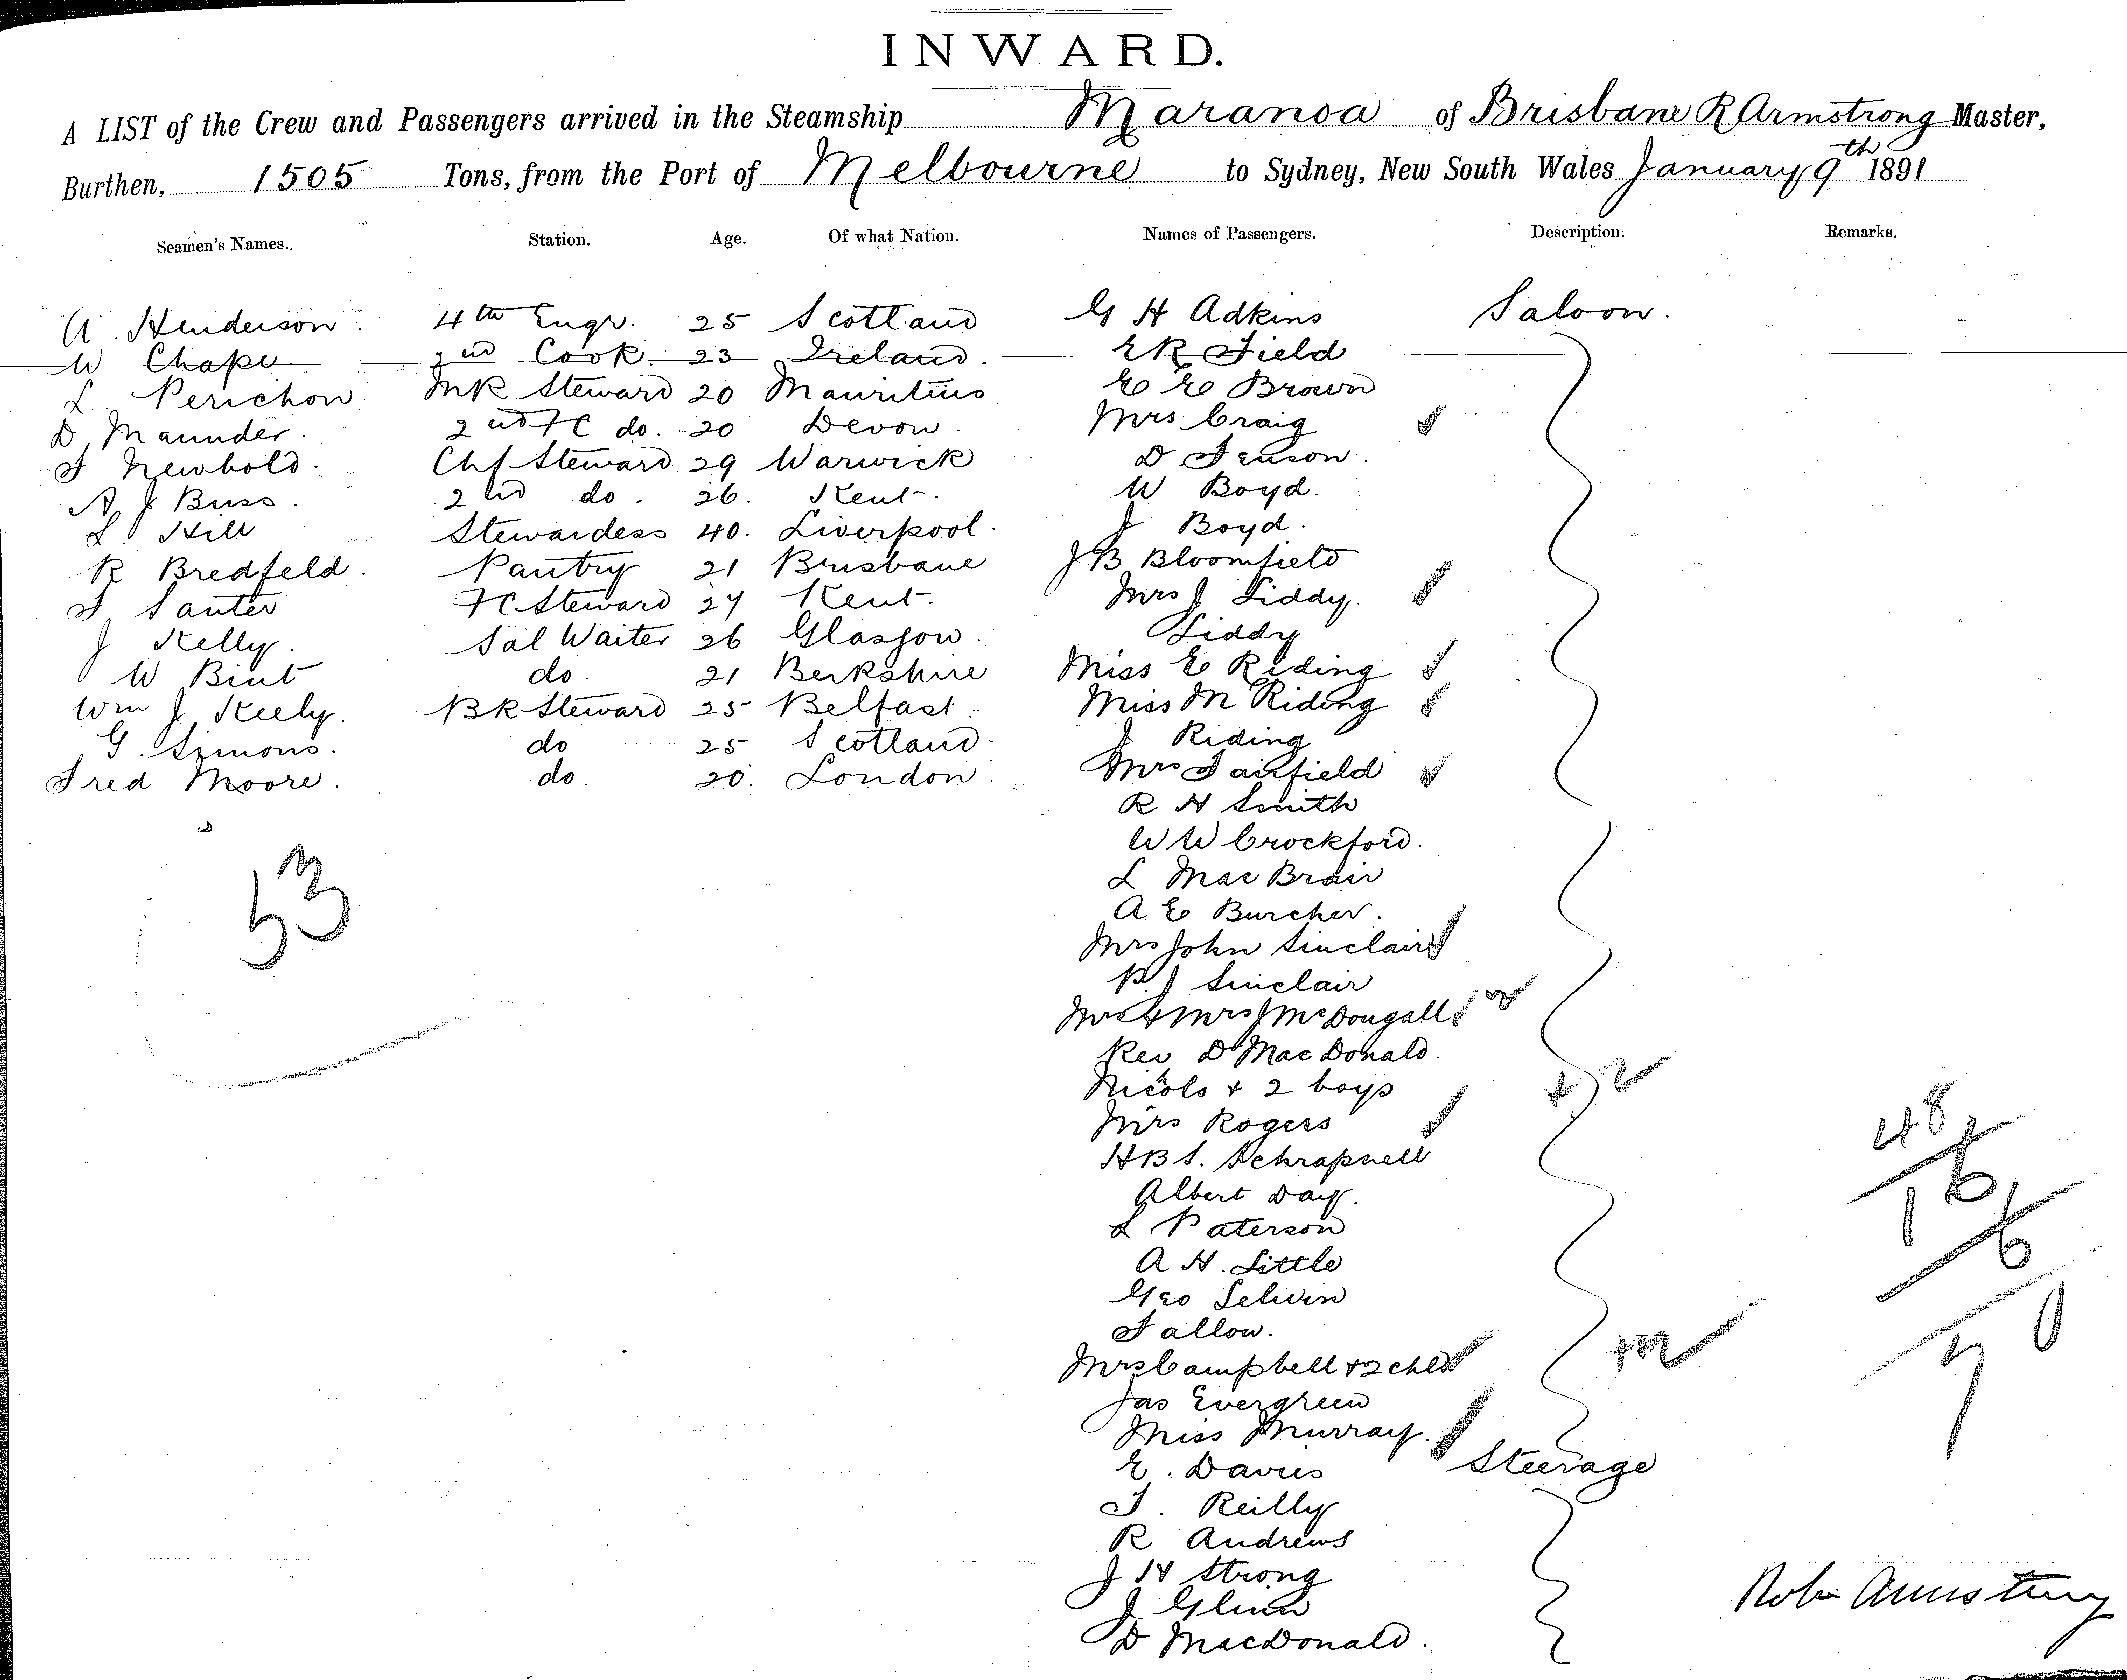 INWARD.
A LIST of the Crew and Passengers arrived in the Steamship Maranoa of Brisbane R Armstrong Master,
Burthen, 1505 Tons, from the Port of Melbourne to Sydney, New South Wales January 9th 1891
Seamen's Names. Station. Age. Of what Nation. Names of Passengers. Description. Remarks.
A Henderson 4th Engr. 25 Scotland G H Adkins Saloon.
W Chape 2nd Cook 23 Ireland. E R Field
L Perichon MR Steward 20 Mauritius E E Brown
D Maunder. 2nd FC do. 20 Devon. Mrs Craig
T Newbold. Chf Steward 29 Warwick D Fenson.
A J Buss. 2nd do. 26. Kent. W Boyd.
L Hill Stewardess 40. Liverpool. J Boyd.
R Bredfeld. Pantry 21 Brisbane J B Bloomfield
F Santer FC Steward 24 Kent. Mrs J Liddy.
J Kelly. Sal Waiter 26 Glasgow. Liddy
W Bint do 21 Berkshire Miss E Riding
Wm J Keely. BR Steward 25 Belfast Miss M Riding
G. Simons. do 25 Scotland J Riding
Fred Moore. do. 20. London. Mrs Fairfield
R H Smith
W W Crockford.
L MacBrair
53
A E Burcher.
Mrs John Sinclair
P J Sinclair
Mr & Mrs J McDougall 2
Rev D MacDonald.
Nicols + 2 boys + 2
Mrs Rogers
48
H B S. Schrapnell
16
Albert Day.
L Paterson
6
A H. Little
Geo Selwin
Fallow.
70
Mrs Campbell + 2 chld +2
Jas Evergreen
Miss Murray.
E. Davies Steerage
T. Reilly
R Andrews
J H Strong
J Glinn
Robt Armstrong
D MacDonald.